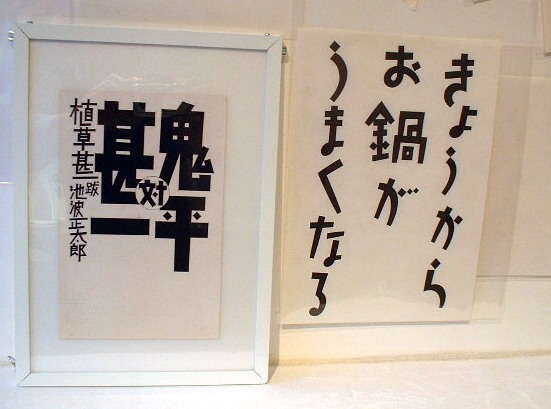 鬼平
対
甚一
植草甚一
跋
池波正太郎
きょうから
お鍋が
うまくなる